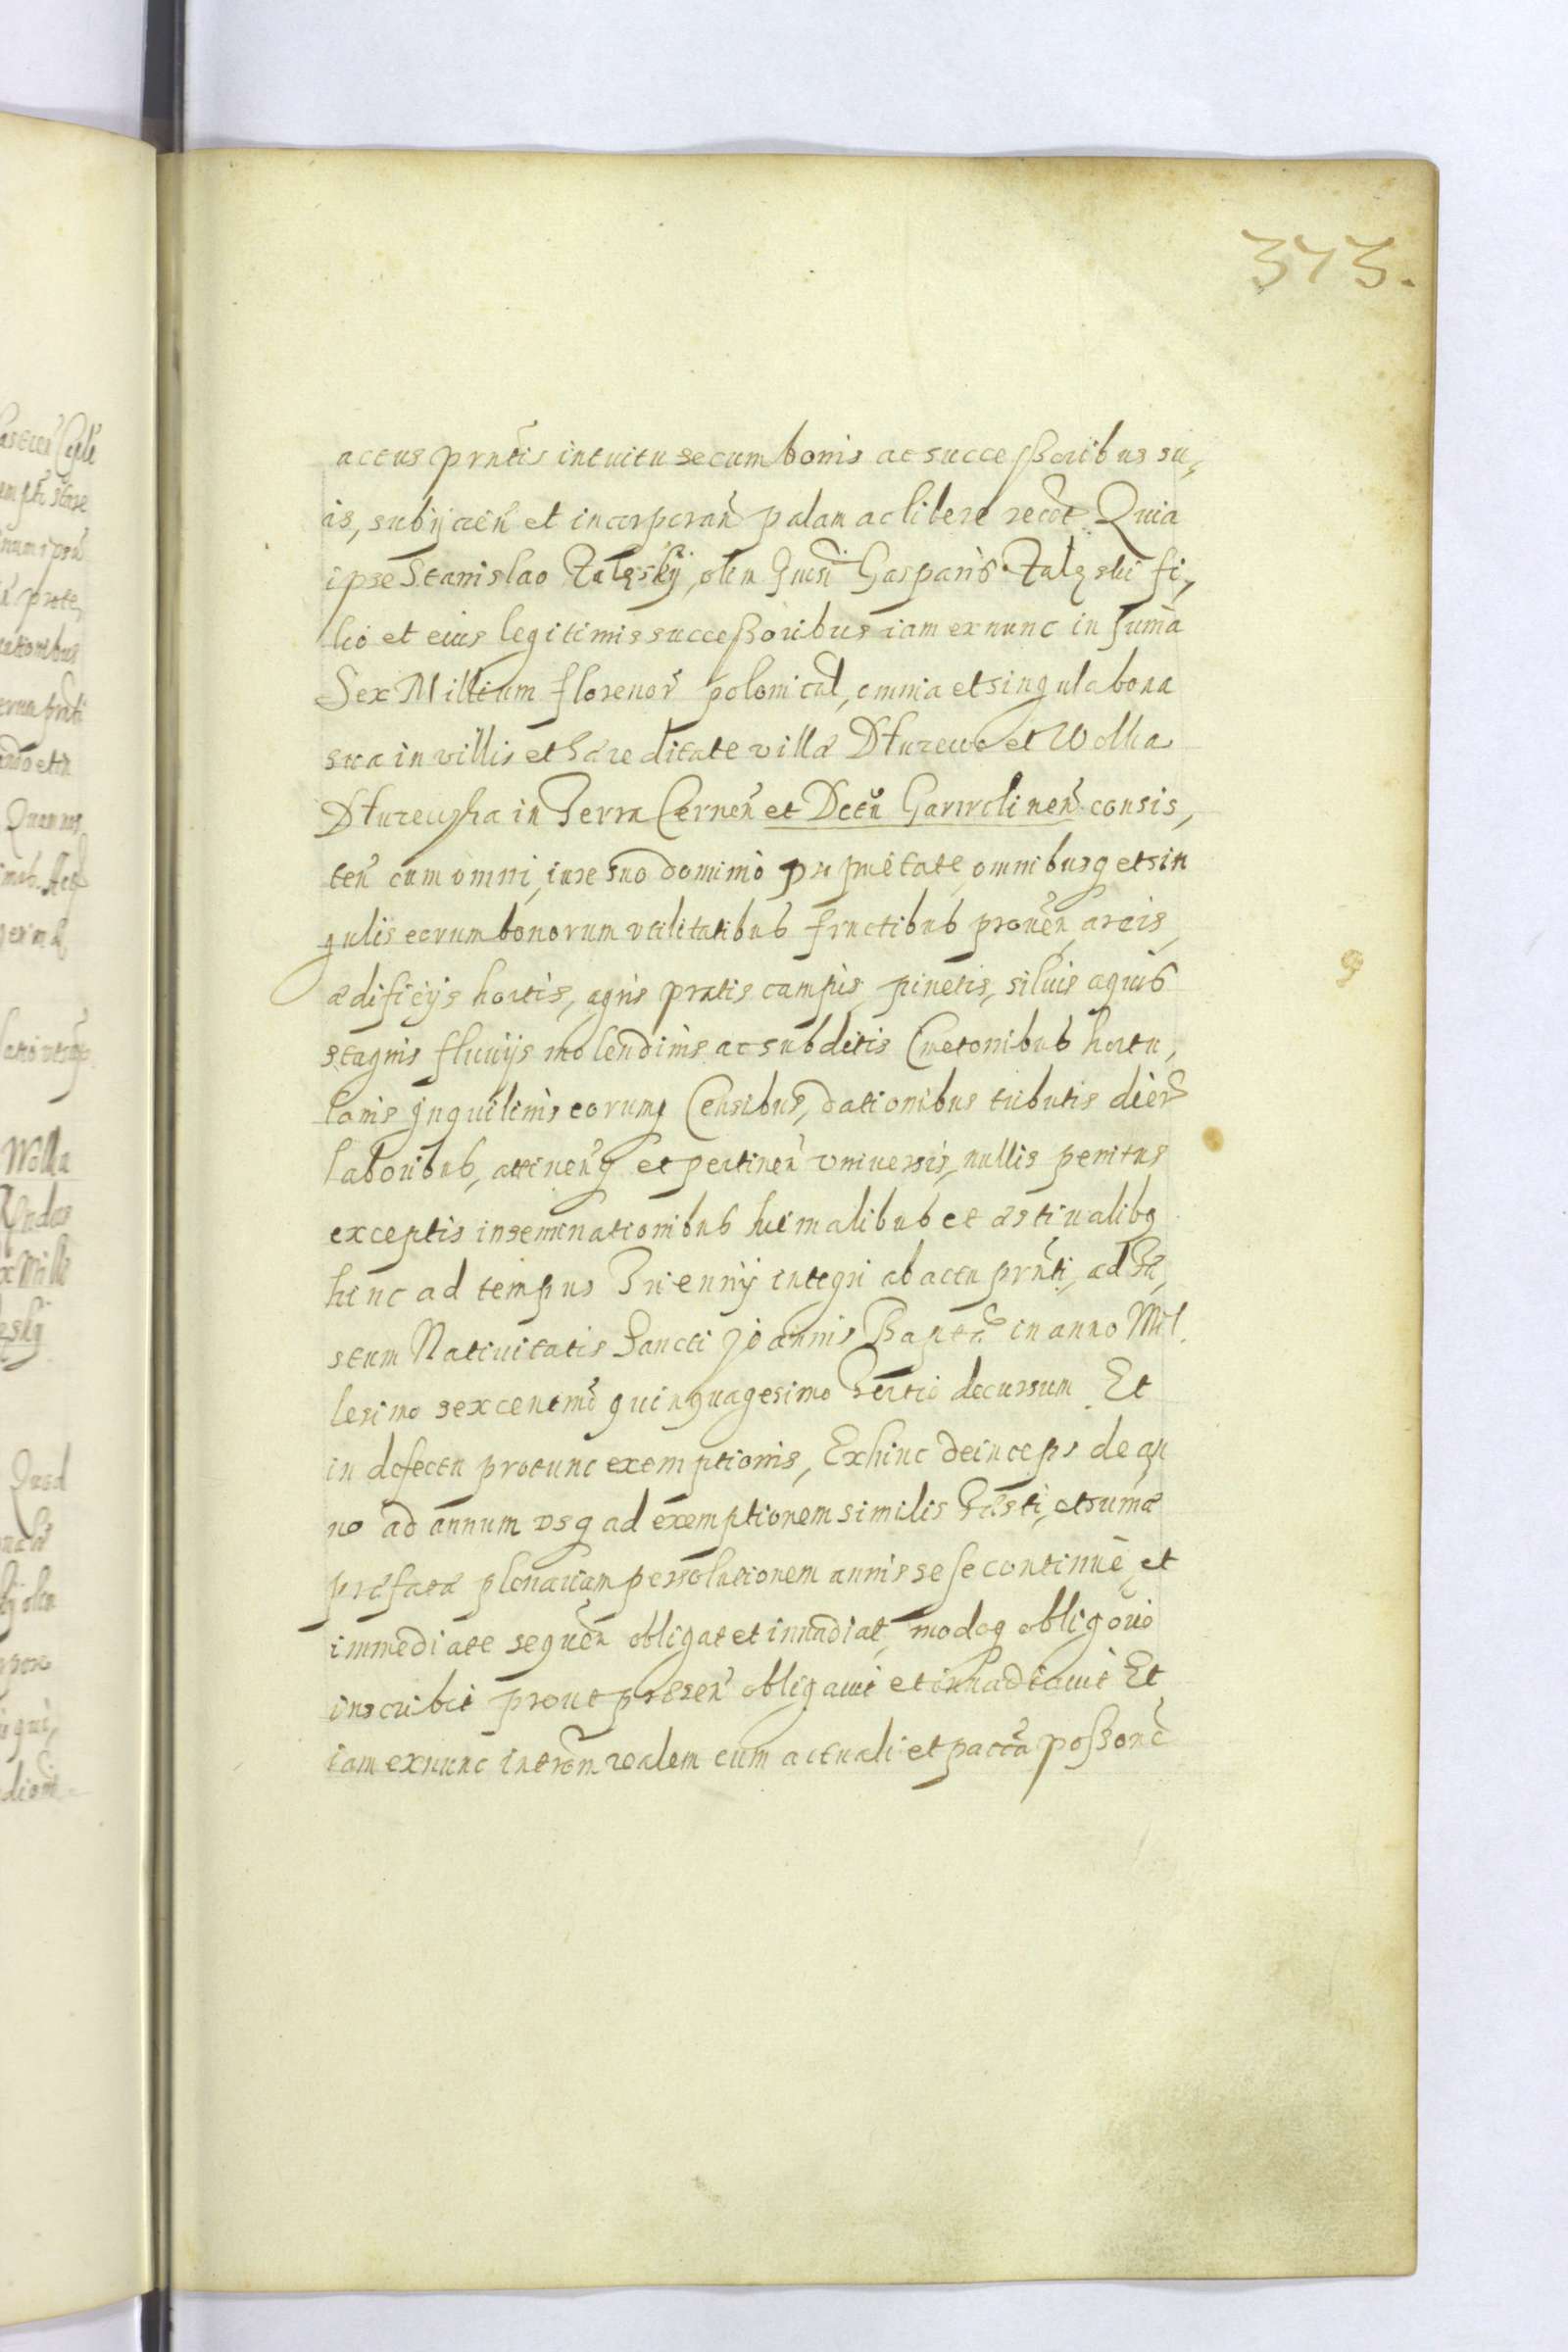 373.
actus prntis intuitu se cum bonis ac successoribus su,
is, subijcien et incorporan palam ac libere recog. Quia
ipse Stanislao Zaleskij, olim Gnosi Gasparis Zaleski fi,
lio et eius legitimis successoribus iam ex nunc in suma
Sex Millium florenor polonical, omnia et singula bona
sua in villis et hæreditate villæ Dłużewo et Wolka
Dłużewska in Terra Cernen et Dctu Garwolinen consis,
ten cum omni iure suo dominio pprietate omnibusq et sin
gulis eorum bonorum vtilitatibus fructibus proven areis,
ædificijs hortis, agris pratis campis pinetis, siluis aquis
stagnis fluvijs molendinis ac subditis Cmetonibus hortu,
lanis Inquilinis eorumq Censibus, dationibus tributis dier
laboribus, attinen q et pertinen vniversis, nullis penitus
exceptis inseminationibus hiemalibus et æstivalibq
hinc ad tempus Triennij integri ab actu prnti, ad Fe,
stum Natiuitatis Sancti Joannis Baptæ in anno Mil
lesimo sexcentmo quinquagesimo Tertio decursum. Et
in defectu protunc exemptionis, Exhinc deinceps de an
no ad annum vsq ad exemptionem similis Festi, et sumæ
præfatæ plenariam persolutionem annis sese continue et
immediate sequen obligat et inuadiat, modoq obligorio
inscribit prout præsen obligauit et inuadiauit Et
iam exnunc introm realem cum actuali et pacca possone